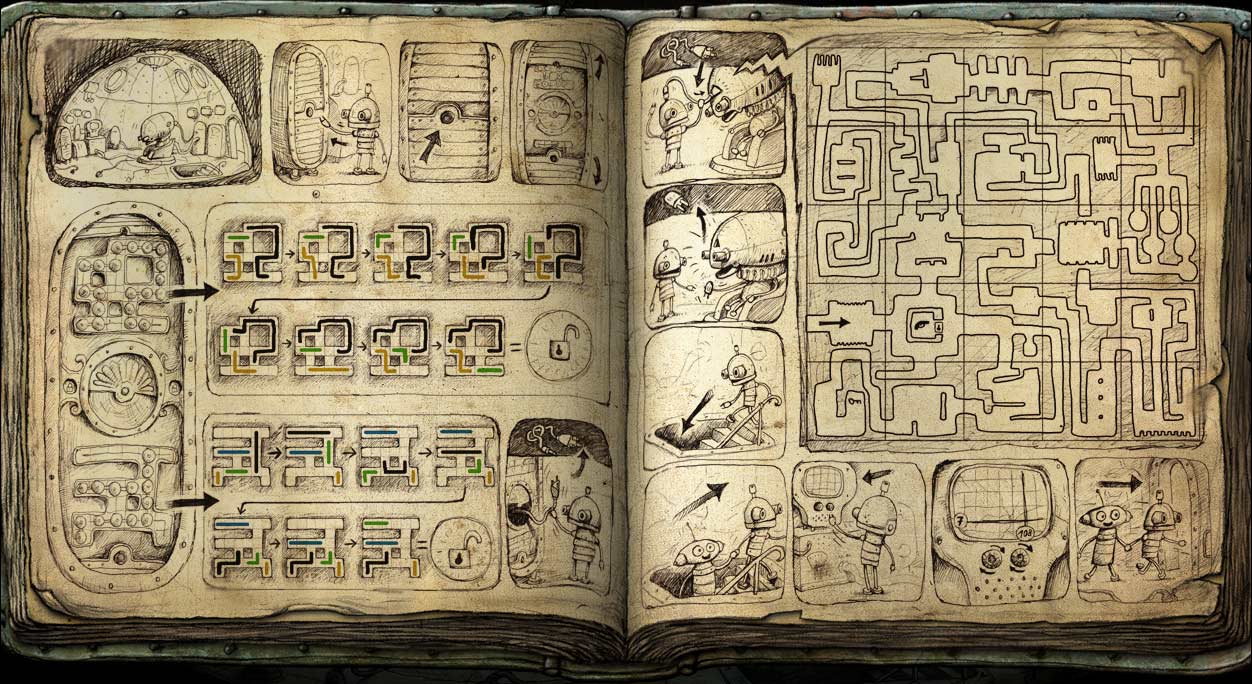 7
108